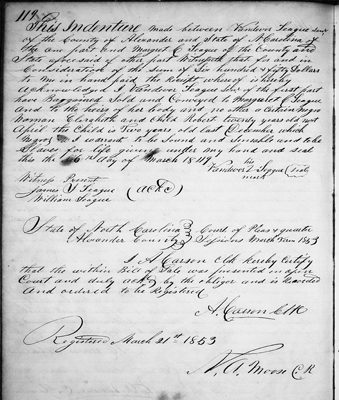 119
This Indenture made between Vandover Teague Senr
of the County of Alexander and State of N Carolina of
the one part and Margret C Teague of the County and
State aforesaid of other part Witnesseth that for and in
Consideration of the sum of Six hundred & fifty Dollars
to him in hand paid the Receipt whereof is hereby
Acknowledged I Vandover Teague Senr of the first part
have Bargained Sold and Conveyed to Margaret C Teague
and to the heirs of her body and no other a certain Negro
Woman Elizabeth and Child Robert twenty years old next
April the Child is Two years old last December which
Negroes I warrant to be Sound and Sensable and to be
Slaves for life given under my hand and seal
this the 6th day of March 1849
his
Vandover Teague
mark
Witness Present
James Teague (ackd)
William Teague
State of North Carolina
Alexander County
Court of Pleas & quarter
Sessions March Term 1853
I A Carson Clk hereby Certify
that the within Bill of Sale was presented in open
Court and duly ackd by the obligor and is Recorded
And ordered to be Registered
A. Carson Clk
Registered March 21st 1853
N. A. Moon C. R